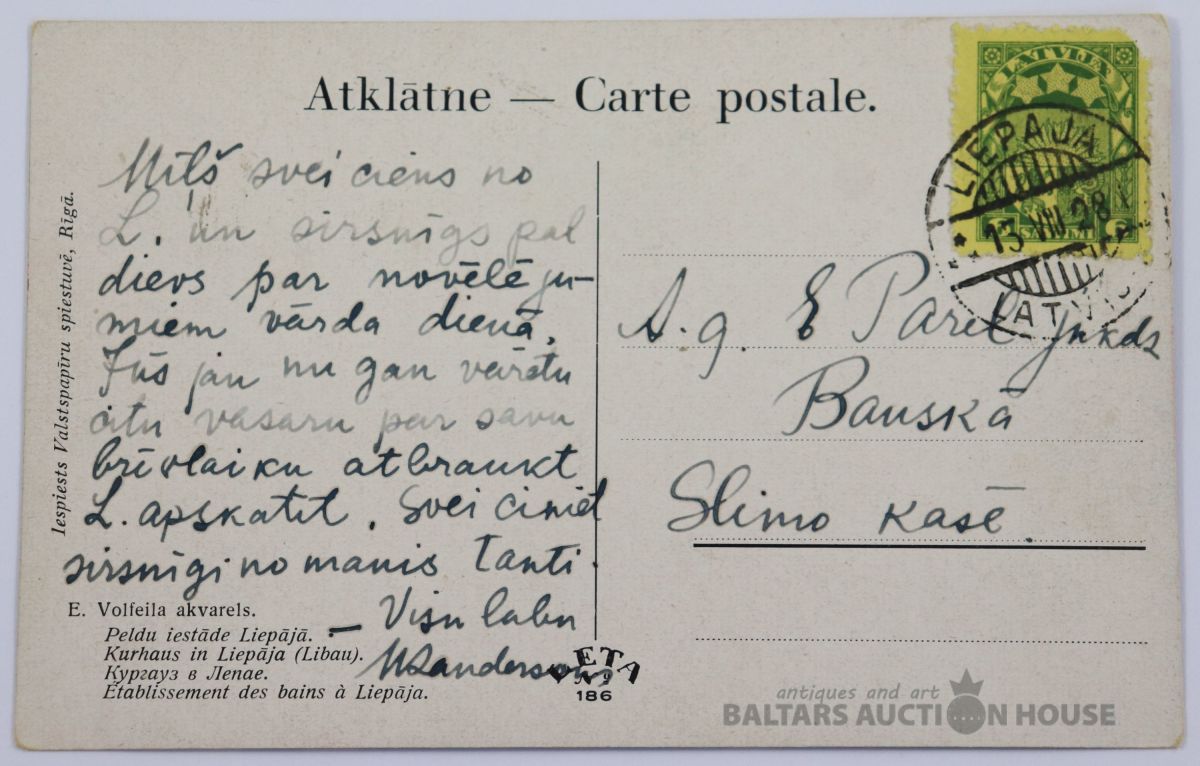 Atklātne — Carte postale.
LATVIJA
6 SANTIMI 6
LIEPAJA
13 VIII 28
LATVIJA
Mīļš sveiciens no
L. un sirsnīgs pal
dievs par novēlēju-
miem vārda dienā.
Jūs jau nu gan varētu
citu vasaru par savu
brīvlaiku atbraukt
L. apskatīt. Sveiciniet
sirsnīgi no manis Tanti.
— Visu labu
A. g. E Parel jnkdz
Bauskā
Slimo kasē.
Iespiests Valstspapīru spiestuvē, Rīgā.
E. Volfeila akvarels.
Peldu iestāde Liepājā.
Kurhaus in Liepāja (Libau).
Кургауз в Лепае.
Établissement des bains à Liepāja.
LETA
№
186
antiques and art
BALTARS AUCTION HOUSE